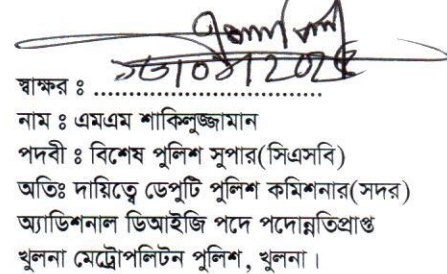 স্বাক্ষর ঃ ....................................
নাম ঃ এমএম শাকিলুজ্জামান
পদবী ঃ বিশেষ পুলিশ সুপার(সিএসবি)
অতিঃ দায়িত্বে ডেপুটি পুলিশ কমিশনার(সদর)
অ্যাডিশনাল ডিআইজি পদে পদোন্নতিপ্রাপ্ত
খুলনা মেট্রোপলিটন পুলিশ, খুলনা।